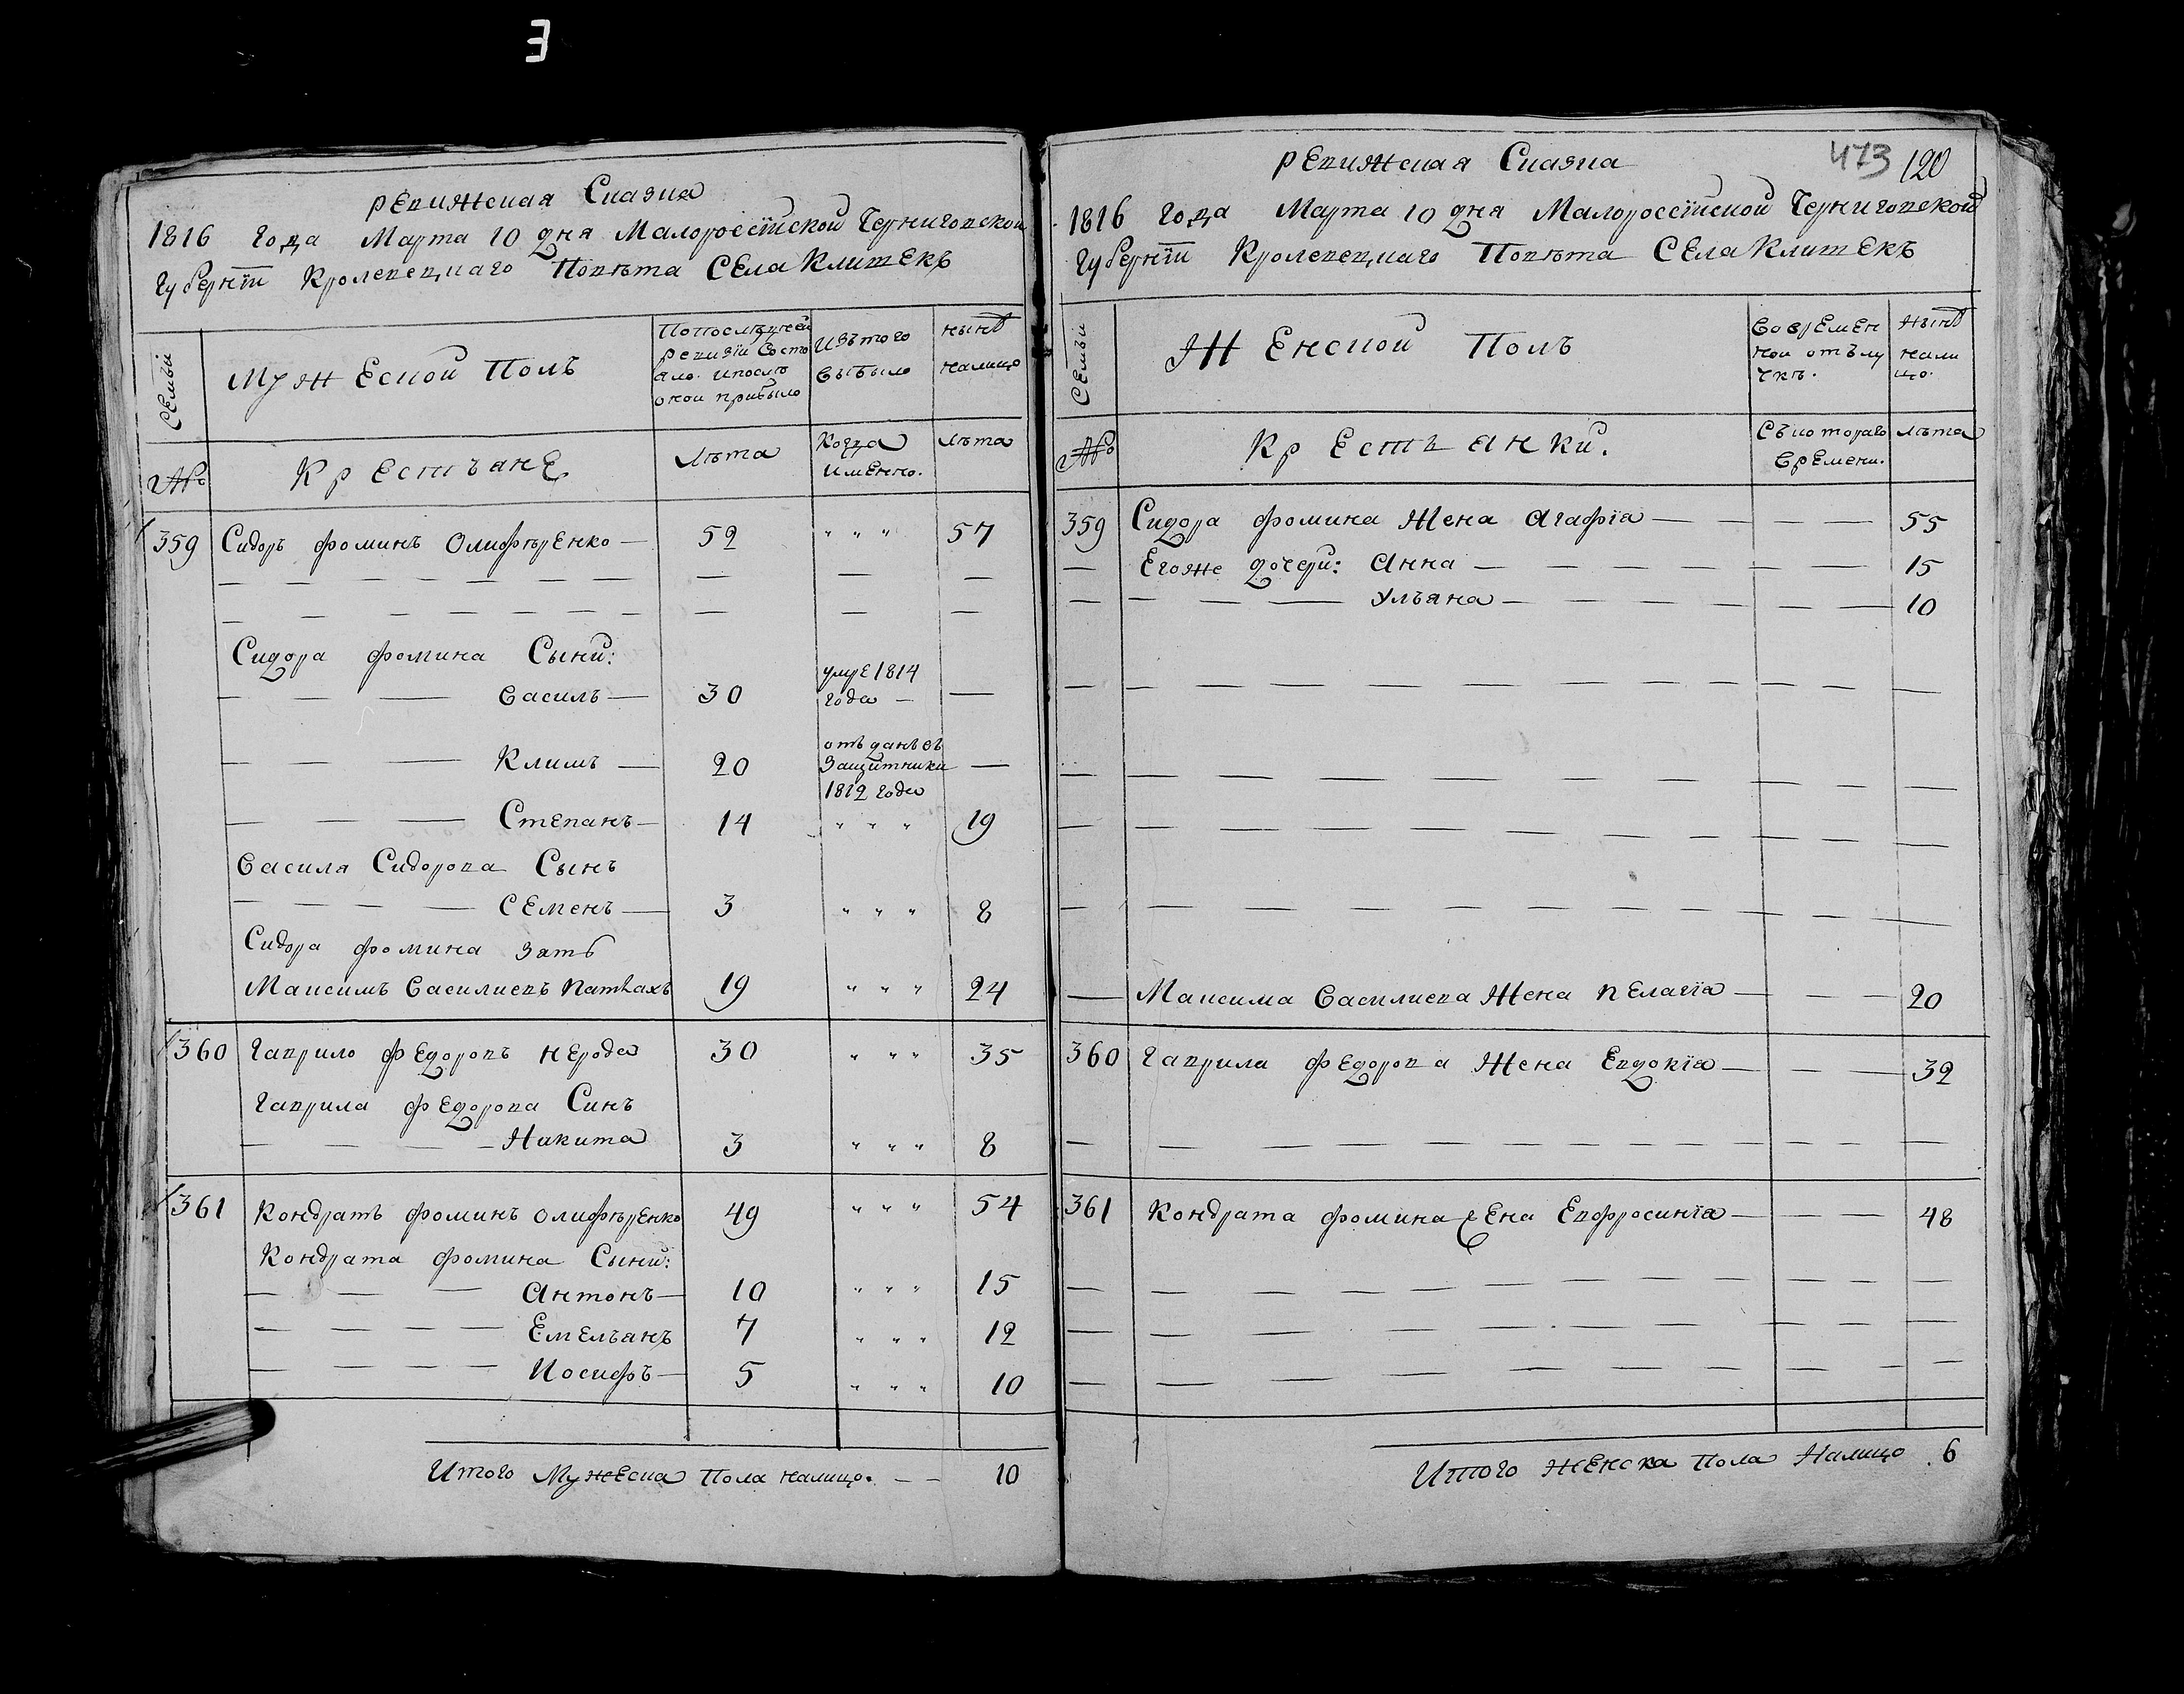 Ревижская Сказка
1816 года Марта 10 дня Малороссїйской Черниговской
Губернїи Кролевецкаго Повѣта Села Клишекъ
Семьи
Мужеской Полъ
Попослѣдней ревизїи состояло и послѣ оной прибыло
Изътого выбыло
нынѣ налицо
№
Крестъяне
Лѣта
Когда именно.
Лѣта
359 Сидоръ Фоминъ Олифѣренко — 52 " " " 57
Сидора Фомина Сыни:
Василъ — 30 умре 1814 года —
Климъ — 20 отъданъ въ Защитники 1812 года —
Степанъ — 14 " " " 19
Василя Сидорова Сынъ
Семенъ — 3 " " " 8
Сидора Фомина Зятъ
Максимъ Василиевъ 19 " " " 24
360 Гаврило Федоровъ Нерода 30 " " " 35
Гаврила Федорова Синъ
Никита 3 " " " 8
361 Кондратъ Фоминъ Олифѣренко 49 " " " 54
Кондрата Фомина Сыни:
Антонъ — 10 " " " 15
Емелъанъ 7 " " " 12
Иосифъ — 5 " " " 10
Итого Мужеска Пола налицо. — — 10
473 120
Ревижская Сказка
1816 года Марта 10 дня Малороссїйской Черниговской
Губернїи Кролевецкаго Повѣта Села Клишекъ
Семьи
Женской Полъ
Вовремен ной отълу чкѣ.
Нынѣ нали цо.
№
Крестъянки.
Съкотораго времени.
Лѣта
359 Сидора Фомина Жена Агафїа — — — 55
Егоже дочери: Анна — — — 15
Улъяна — — — 10
Максима Василиева Жена Пелагїа — — — 20
360 Гаврила Федорова Жена Евдокїа — — — 32
361 Кондрата Фомина жена Евфросинїа — — — 48
Итого женска Пола Налицо . 6